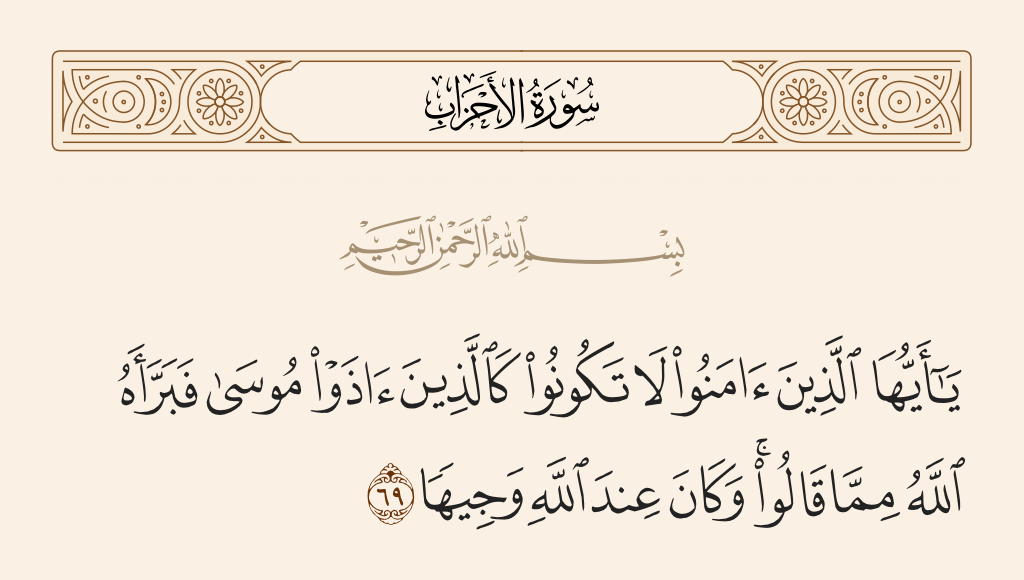 سُورَةُ الأَحْزَابِ
بِسْمِ ٱللَّهِ ٱلرَّحْمَٰنِ ٱلرَّحِيمِ
يَـٰٓأَيُّهَا ٱلَّذِينَ ءَامَنُوا۟ لَا تَكُونُوا۟ كَٱلَّذِينَ ءَاذَوْا۟ مُوسَىٰ فَبَرَّأَهُ
ٱللَّهُ مِمَّا قَالُوا۟ ۚ وَكَانَ عِندَ ٱللَّهِ وَجِيهًا ٦٩